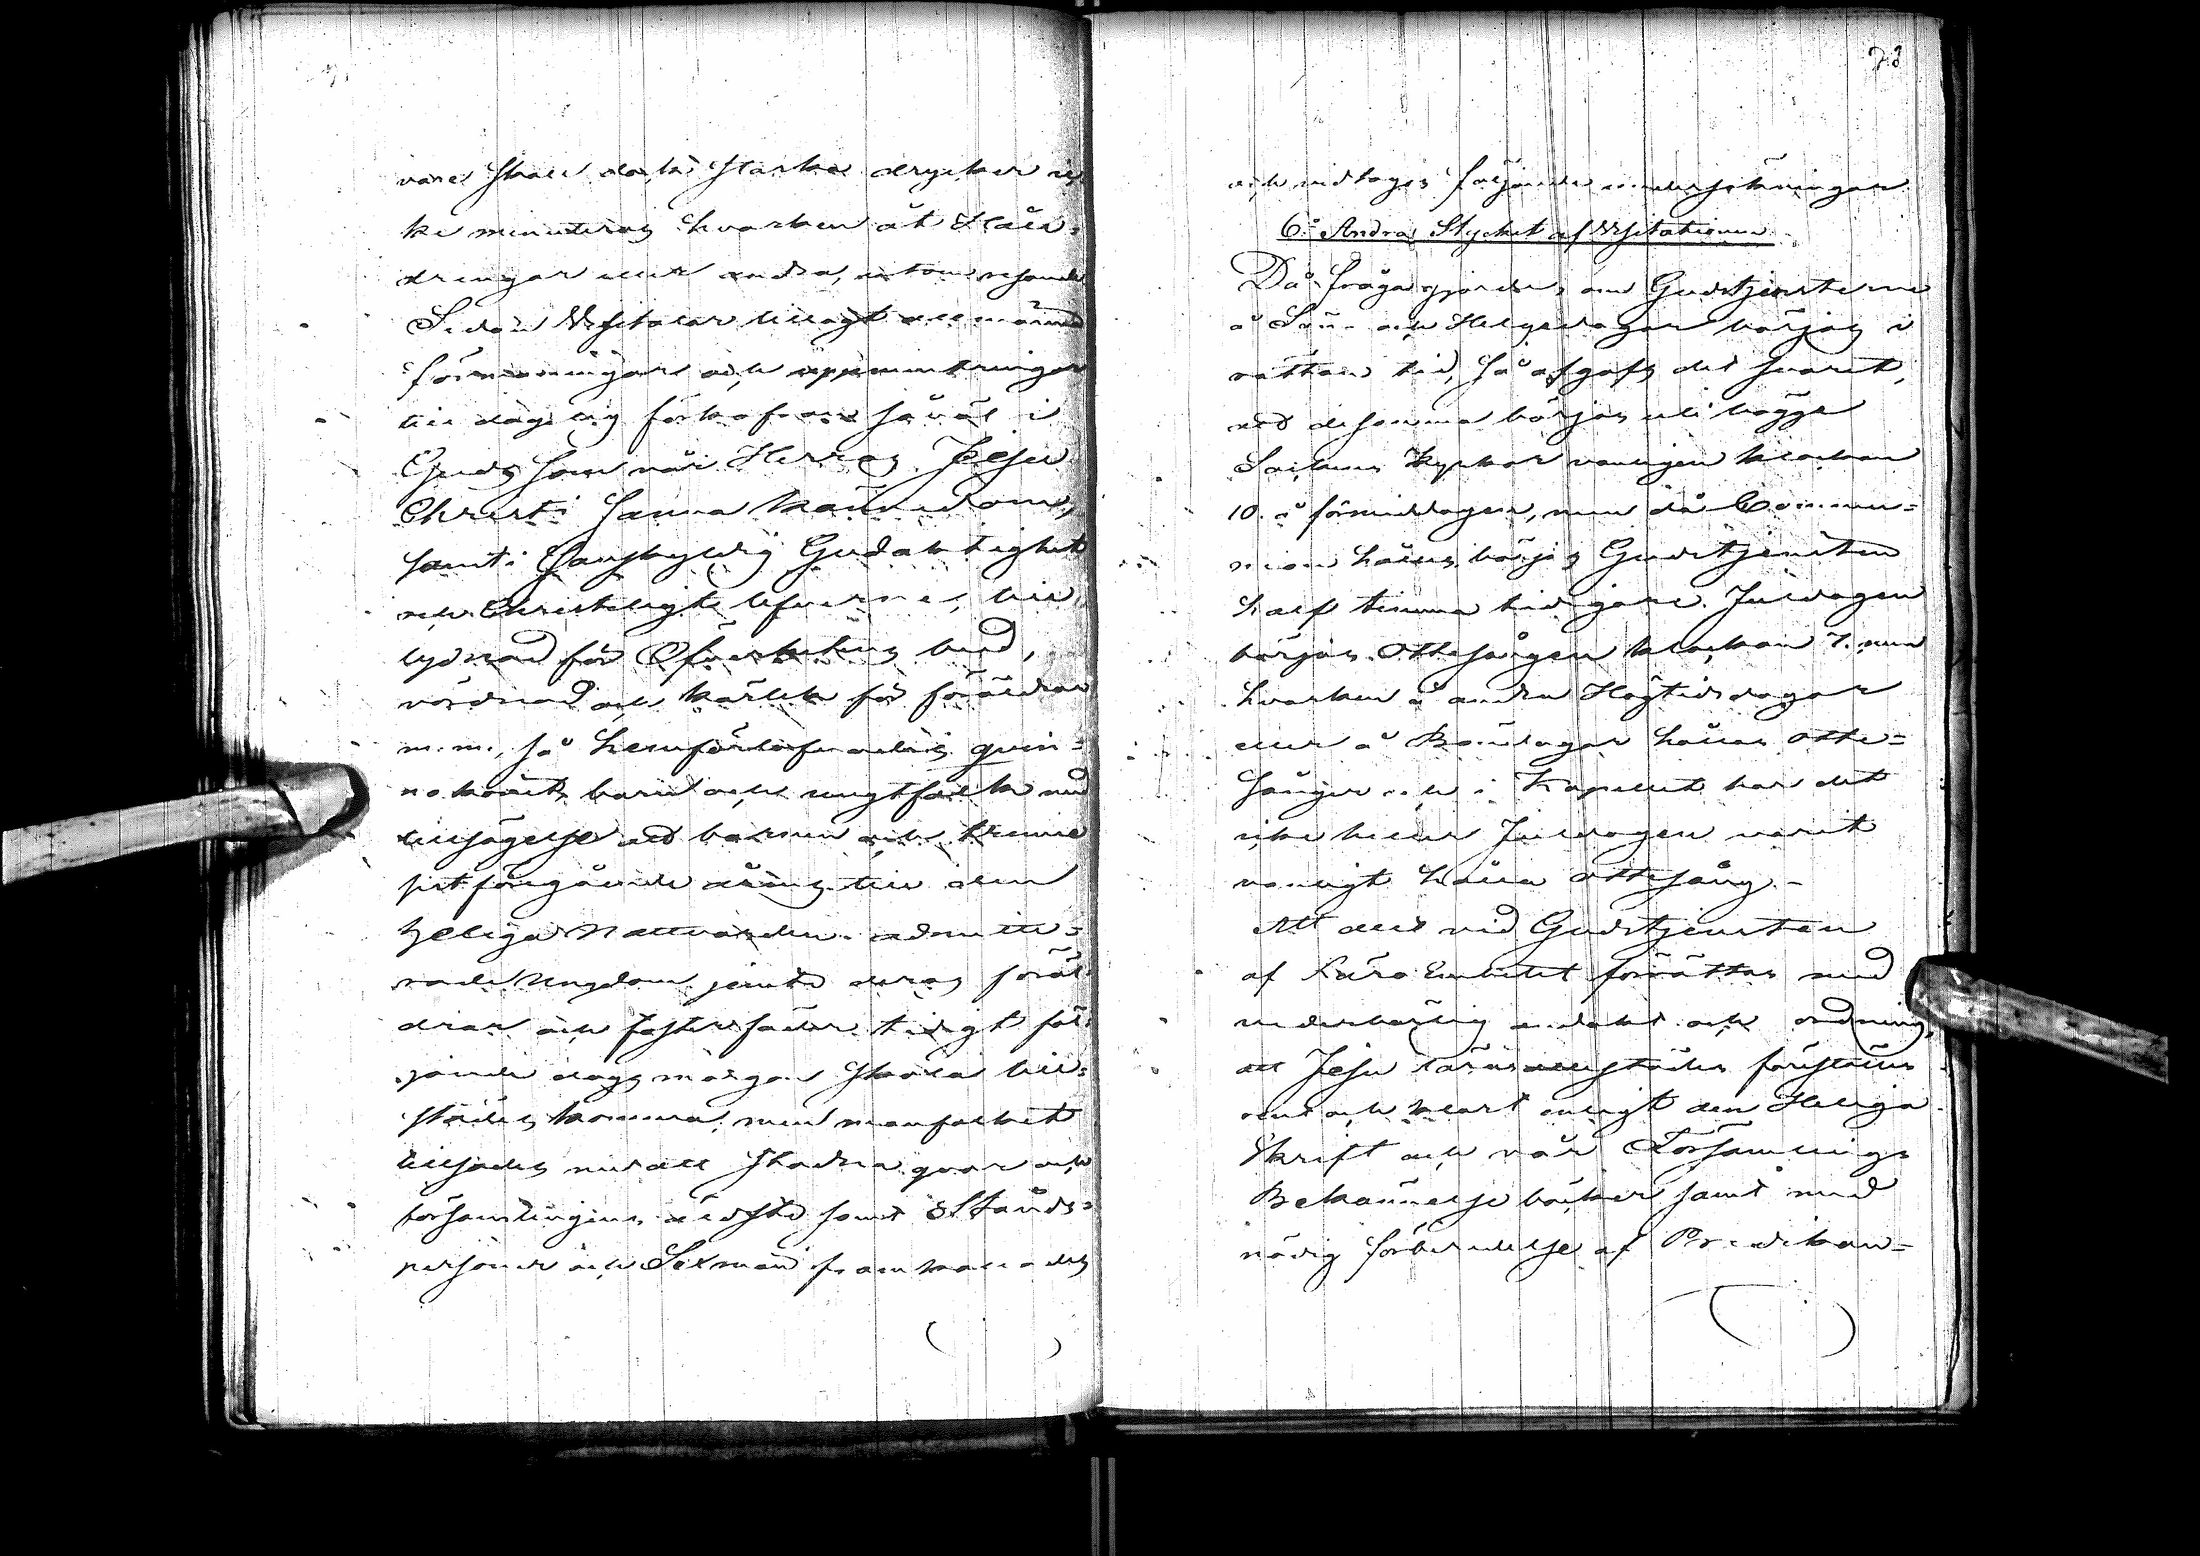 vare skall dock starka drycker ic,
ke minuteras hvarken åt Hållː
drengar eller andra, utom resande
Sedan Visitator tillagt allmänna
förmaningar och uppmuntringar
till daglig förkofran såväl i
Guds som vår Herras Jesu
Christi sanna kännedom,
samt i Gudaktighet
och Christeligt lefverne, till
lydnad för Öfverhetens bud,
vördnad och kärlek för föräldrar
m.m., så hemförlofvades qvin=
nokönet, barn och ungt folk med
tillsägelse att barnen och
sist föregående gång till den
heliga Nattvarden admitte=
rade Ungdom jemte deras föräl
drar och fosterfäder tidigt föl
jande dags morgon skola till=
städes komma, men manfolket
tillsades att stadna qvar och
församlingens äldste samt Stånds=
personer och Sexmän framkallades
73
och vidtogs följande undersökningar
6:o Andra Stycket af Visitationen
Då fråga gjordes, om Gudstjensterne
å Sön- och Helgedagar börjas i
rättan tid, så afgafs det svaret,
att desamma börjas uti bägge
Socknens Kyrkor vanligen klockan
10. å förmiddagen, men då Commu=
nion hålles, börjas Gudstjensten
half timma tidigare. Juldagen
börjas Ottesången klockan 7. men
hvarken å andra Högtidsdagar
eller å Böndagar hållas otte=
sånger och i Kapellet har det
icke heller Juldagen varit
vanligt hålla ottesång.-
Att allt vid Gudstjensten
af Lära Embetet förrättas med
vederbörlig andakt och ordning,
att Jesu lära allestädes föreställes
rent och klart enligt den Heliga
Skrift och vår Församlings
Bekännelse böcker samt med
nödig förberedelse af Predikan=